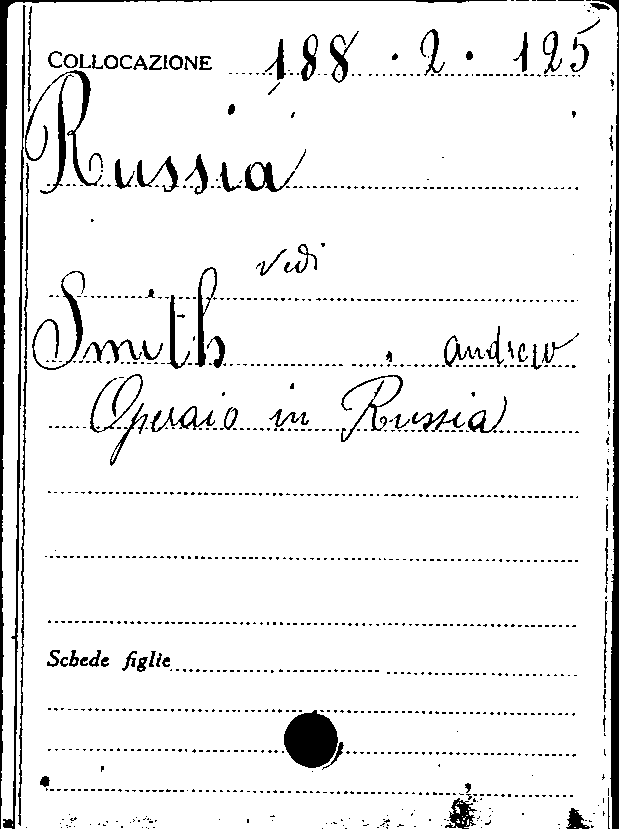 COLLOCAZIONE 188 · 2 · 125
Russia
vedi
Smith, andrew
Operaio in Russia
Schede figlie